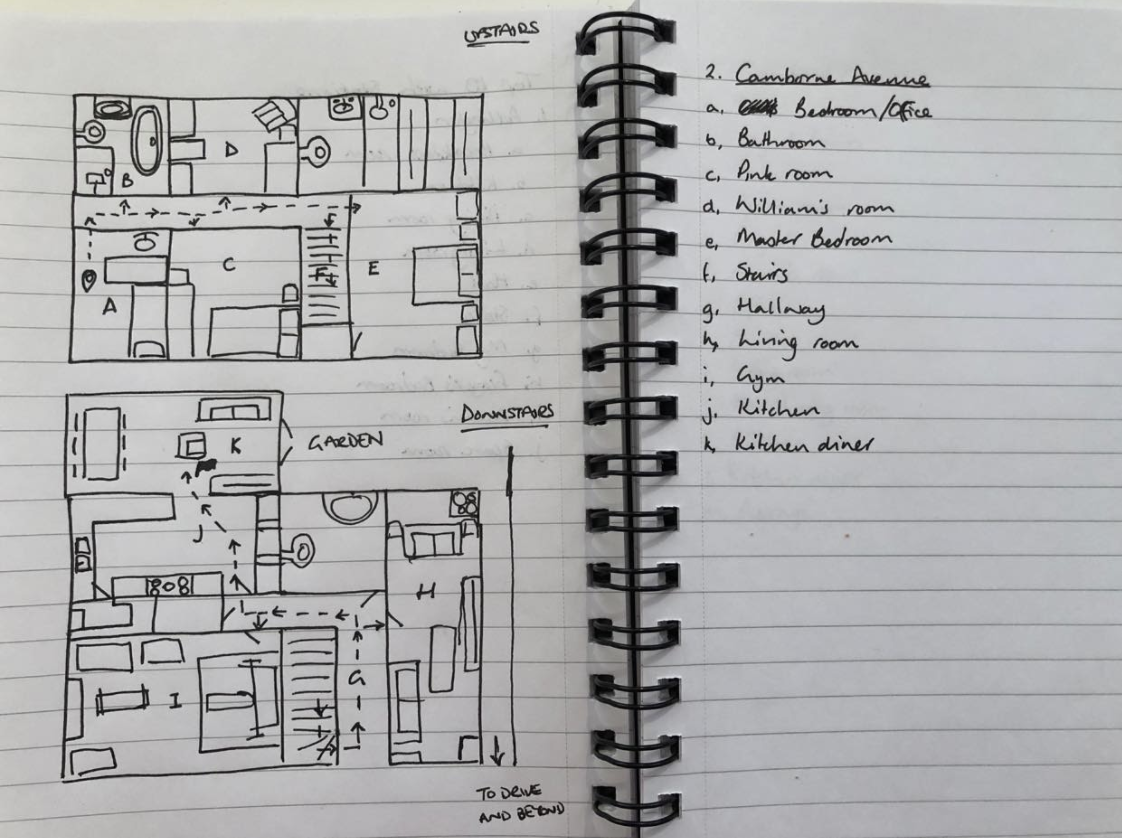 UPSTAIRS
D
B
C
E
F
A
DOWNSTAIRS
K
GARDEN
J
H
G
I
TO DRIVE
AND BEYOND
2. Camborne Avenue
a. Bedroom/Office
b, Bathroom
c, Pink room
d, William's room
e, Master Bedroom
f, Stairs
g, Hallway
h, Living room
i, Gym
j. Kitchen
k, Kitchen diner